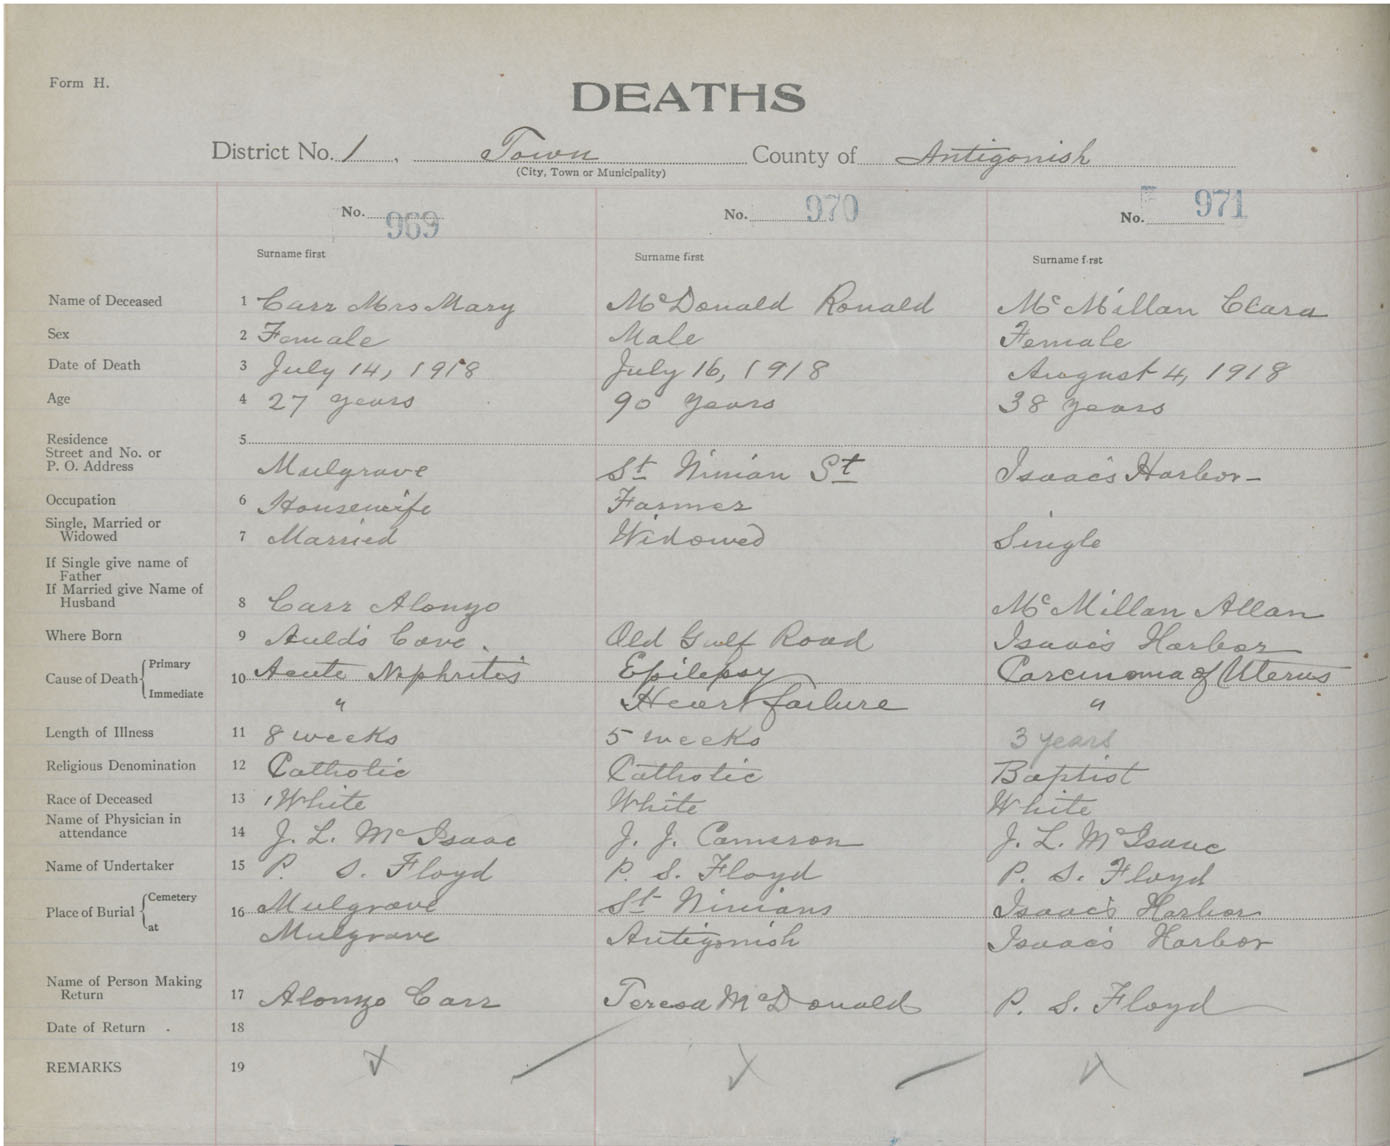 Form H.
DEATHS
District No. 1. Town County of Antigonish
(City, Town or Municipality)
No. 969 No. 970 No. 971
Surname first Surname first Surname first
Name of Deceased 1 Carr Mrs Mary McDonald Ronald McMillan Clara
Sex 2 Female Male Female
Date of Death 3 July 14, 1918 July 16, 1918 August 4, 1918
Age 4 27 years 90 years 38 years
Residence 5
Street and No. or
P. O. Address Mulgrave St Ninian St Isaac's Harbor
Occupation 6 Housewife Farmer
Single, Married or
Widowed 7 Married Widowed Single
If Single give name of
Father
If Married give Name of
Husband 8 Carr Alonzo McMillan Allan
Where Born 9 Auld's Cove. Old Gulf Road Isaac's Harbor
Cause of Death { Primary 10 Acute Nephritis Epilepsy Carcinoma of Uterus
Immediate " Heart failure "
Length of Illness 11 8 weeks 5 weeks 3 years
Religious Denomination 12 Catholic Catholic Baptist
Race of Deceased 13 White White White
Name of Physician in
attendance 14 J. L. McIsaac J. J. Cameron J. L. McIsaac
Name of Undertaker 15 P. S. Floyd P. S. Floyd P. S. Floyd
Place of Burial { Cemetery 16 Mulgrave St Ninians Isaac's Harbor
at Mulgrave Antigonish Isaac's Harbor
Name of Person Making
Return 17 Alonzo Carr Teresa McDonald P. S. Floyd
Date of Return 18
REMARKS 19